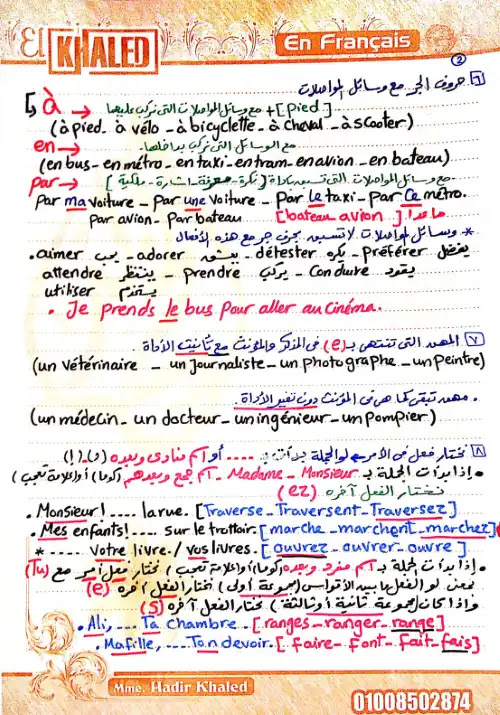 El KHALED
En Français
②
٦ حروف الجر مع وسائل المواصلات
à → مع وسائل المواصلات التى نركب عليها + [pied]
(à pied - à vélo - à bicyclette - à cheval - à scooter)
en → مع الوسائل التى نركب بداخلها.
(en bus - en métro - en taxi - en tram - en avion - en bateau)
par → مع وسائل المواصلات التى تسبق بأداة [نكرة - معرفة - اشارة - ملكية]
Par ma voiture - Par une voiture - Par le taxi - Par ce métro.
Par avion - Par bateau [bateau - avion] ماعدا.
* وسائل المواصلات لا تسبق بحرف جر مع هذه الأفعال
. aimer يحب - adorer يعشق - détester يكره - préférer يفضل
attendre ينتظر - prendre يركب - conduire يقود
utiliser يستخدم
. Je prends le bus pour aller au cinéma.
٧ المهن التى تنتهى بـ (e) فى المذكر والمؤنث مع تأنيث الأداة.
(un vétérinaire - un journaliste - un photographe - un peintre)
. مهن تبقى كما هى فى المؤنث دون تغيير الأداة.
(un médecin - un docteur - un ingénieur - un pompier)
٨ نختار فعل فى الأمر لو الجملة بدأت بـ .... أو اسم منادى وبعده (,) (!)
. إذا بدأت الجملة بـ Monsieur - Madame - اسم جمع وبعدهم (كوما) أو (علامة تعجب)
نختار الفعل آخره (ez)
. Monsieur! .... la rue. [Traverse - Traversent - Traversez]
. Mes enfants! .... sur le trottoir. [marche - marchent - marchez]
* .... Votre livre. / vos livres. [ouvrez - ouvrer - ouvre]
. إذا بدأت الجملة بـ اسم مفرد وبعده (كوما) أو (علامة تعجب) نختار فعل أمر مع (Tu)
بمعنى لو الفعل ما بين الأقواس (مجموعة أولى) نختار الفعل آخره (e)
وإذا كان (مجموعة ثانية أو ثالثة) نختار الفعل آخره (s)
. Ali, .... Ta chambre. [ranges - ranger - range]
. Ma fille, .... Ton devoir. [faire - font - fait - fais]
Mme. Hadir Khaled
01008502874